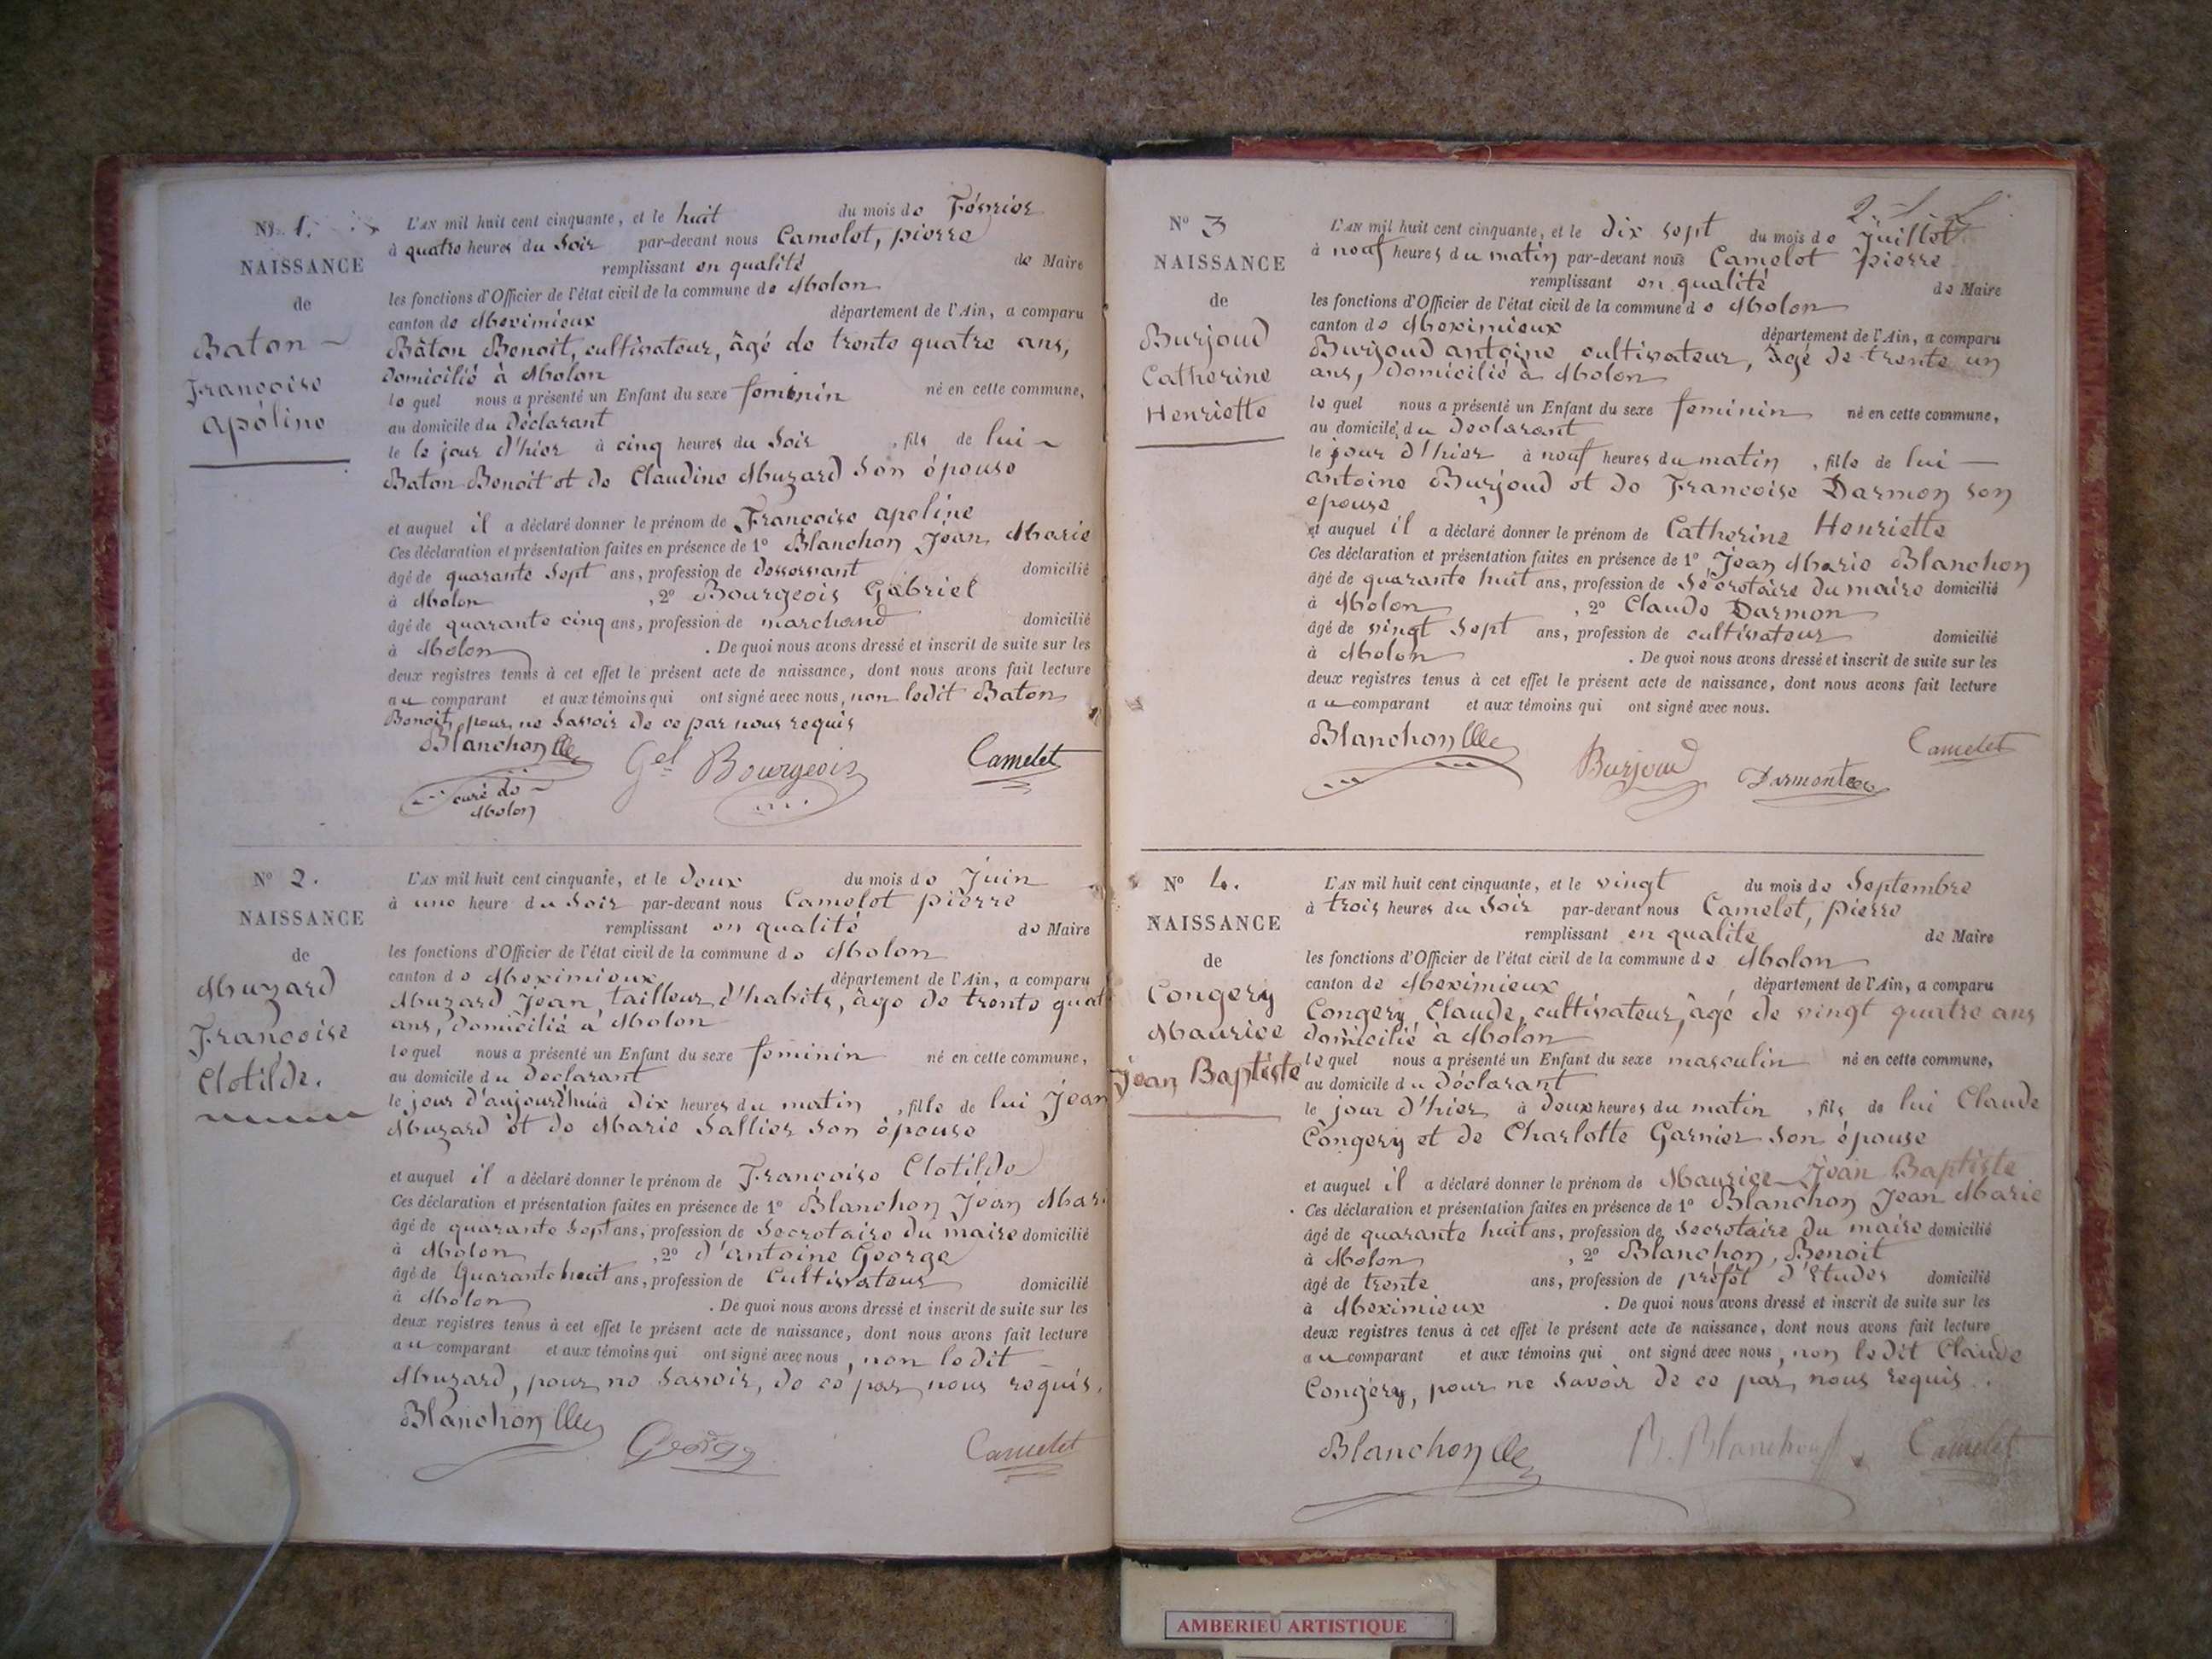 N° 1.
NAISSANCE
de
Baton
Françoise
Apoline
L'AN mil huit cent cinquante, et le huit du mois de Février
à quatre heures du Soir par-devant nous Camelet, pierre
remplissant en qualité de Maire
les fonctions d'Officier de l'état civil de la commune de Molon
canton de Meximieux département de l'Ain, a comparu
Bâton Benoit, cultivateur, âgé de trente quatre ans,
Domicilié à Molon
lequel nous a présenté un Enfant du sexe feminin né en cette commune,
au domicile du Déclarant
le le jour d'hier à cinq heures du Soir , fils de lui
Baton Benoit et de Claudine Muzard Son épouse
et auquel il a déclaré donner le prénom de Françoise apoline
Ces déclaration et présentation faites en présence de 1° Blanchon Jean Marie
âgé de quarante Sept ans, profession de Desservant domicilié
à Molon , 2° Bourgeois Gabriel
âgé de quarante cinq ans, profession de marchand domicilié
à Molon . De quoi nous avons dressé et inscrit de suite sur les
deux registres tenus à cet effet le présent acte de naissance, dont nous avons fait lecture
au comparant et aux témoins qui ont signé avec nous, non ledit Baton
Benoit, pour ne Savoir de ce par nous requis
Blanchon
curé de
Molon
Gel Bourgeois
Camelet
N° 2.
NAISSANCE
de
Muzard
Françoise
Clotilde.
L'AN mil huit cent cinquante, et le Deux du mois de Juin
à une heure du Soir par-devant nous Camelet pierre
remplissant en qualité de Maire
les fonctions d'Officier de l'état civil de la commune de Molon
canton de Meximieux département de l'Ain, a comparu
Muzard Jean, tailleur d'habits, âge de trente quat
ans, domicilié à Molon
lequel nous a présenté un Enfant du sexe feminin né en cette commune,
au domicile du Declarant
le jour d'aujourd'hui à Dix heures du matin , fille de lui Jean
Muzard et de Marie Sallier Son épouse
et auquel il a déclaré donner le prénom de Françoise Clotilde
Ces déclaration et présentation faites en présence de 1° Blanchon Jean Mari
âgé de quarante Sept ans, profession de Secretaire du maire domicilié
à Molon , 2° d'antoine George
âgé de Quarante huit ans, profession de Cultivateur domicilié
à Molon . De quoi nous avons dressé et inscrit de suite sur les
deux registres tenus à cet effet le présent acte de naissance, dont nous avons fait lecture
au comparant et aux témoins qui ont signé avec nous, non ledit
Muzard, pour ne Savoir, de ce par nous requis.
Blanchon
George
Camelet
N° 3
NAISSANCE
de
Burjoud
Catherine
Henriette
2
L'AN mil huit cent cinquante, et le dix sept du mois de Juillet
à neuf heures du matin par-devant nous Camelet pierre
remplissant en qualité de Maire
les fonctions d'Officier de l'état civil de la commune de Molon
canton de Meximieux département de l'Ain, a comparu
Burjoud antoine cultivateur, âgé de trente un
ans, Domicilié à Molon
lequel nous a présenté un Enfant du sexe feminin né en cette commune,
au domicile du Declarant
le jour d'hier à neuf heures du matin , fille de lui
antoine Burjoud et de Francoise Darmon son
epouse
et auquel il a déclaré donner le prénom de Catherine Henriette
Ces déclaration et présentation faites en présence de 1° Jean Marie Blanchon
âgé de quarante huit ans, profession de Secretaire du maire domicilié
à Molon , 2° Claude Darmon
âgé de vingt Sept ans, profession de cultivateur domicilié
à Molon . De quoi nous avons dressé et inscrit de suite sur les
deux registres tenus à cet effet le présent acte de naissance, dont nous avons fait lecture
au comparant et aux témoins qui ont signé avec nous.
Blanchon
Burjoud
Camelet
N° 4.
NAISSANCE
de
Congery
Maurice
jean Baptiste
L'AN mil huit cent cinquante, et le vingt du mois de Septembre
à trois heures du Soir par-devant nous Camelet, Pierre
remplissant en qualité de Maire
les fonctions d'Officier de l'état civil de la commune de Molon
canton de Meximieux département de l'Ain, a comparu
Congery Claude, cultivateur, âgé de vingt quatre ans
Domicilié à Molon
lequel nous a présenté un Enfant du sexe masculin né en cette commune,
au domicile du Déclarant
le jour d'hier à deux heures du matin , fils de lui Claude
Congery et de Charlotte Garnier Son épouse
et auquel il a déclaré donner le prénom de Maurice Jean Baptiste
Ces déclaration et présentation faites en présence de 1° Blanchon Jean Marie
âgé de quarante huit ans, profession de Secretaire du maire domicilié
à Molon , 2° Blanchon, Benoit
âgé de trente ans, profession de préfet d'Etudes domicilié
à Meximieux . De quoi nous avons dressé et inscrit de suite sur les
deux registres tenus à cet effet le présent acte de naissance, dont nous avons fait lecture
au comparant et aux témoins qui ont signé avec nous, non ledit Claude
Congery, pour ne Savoir de ce par nous requis.
Blanchon
B. Blanchon
Camelet
AMBERIEU ARTISTIQUE